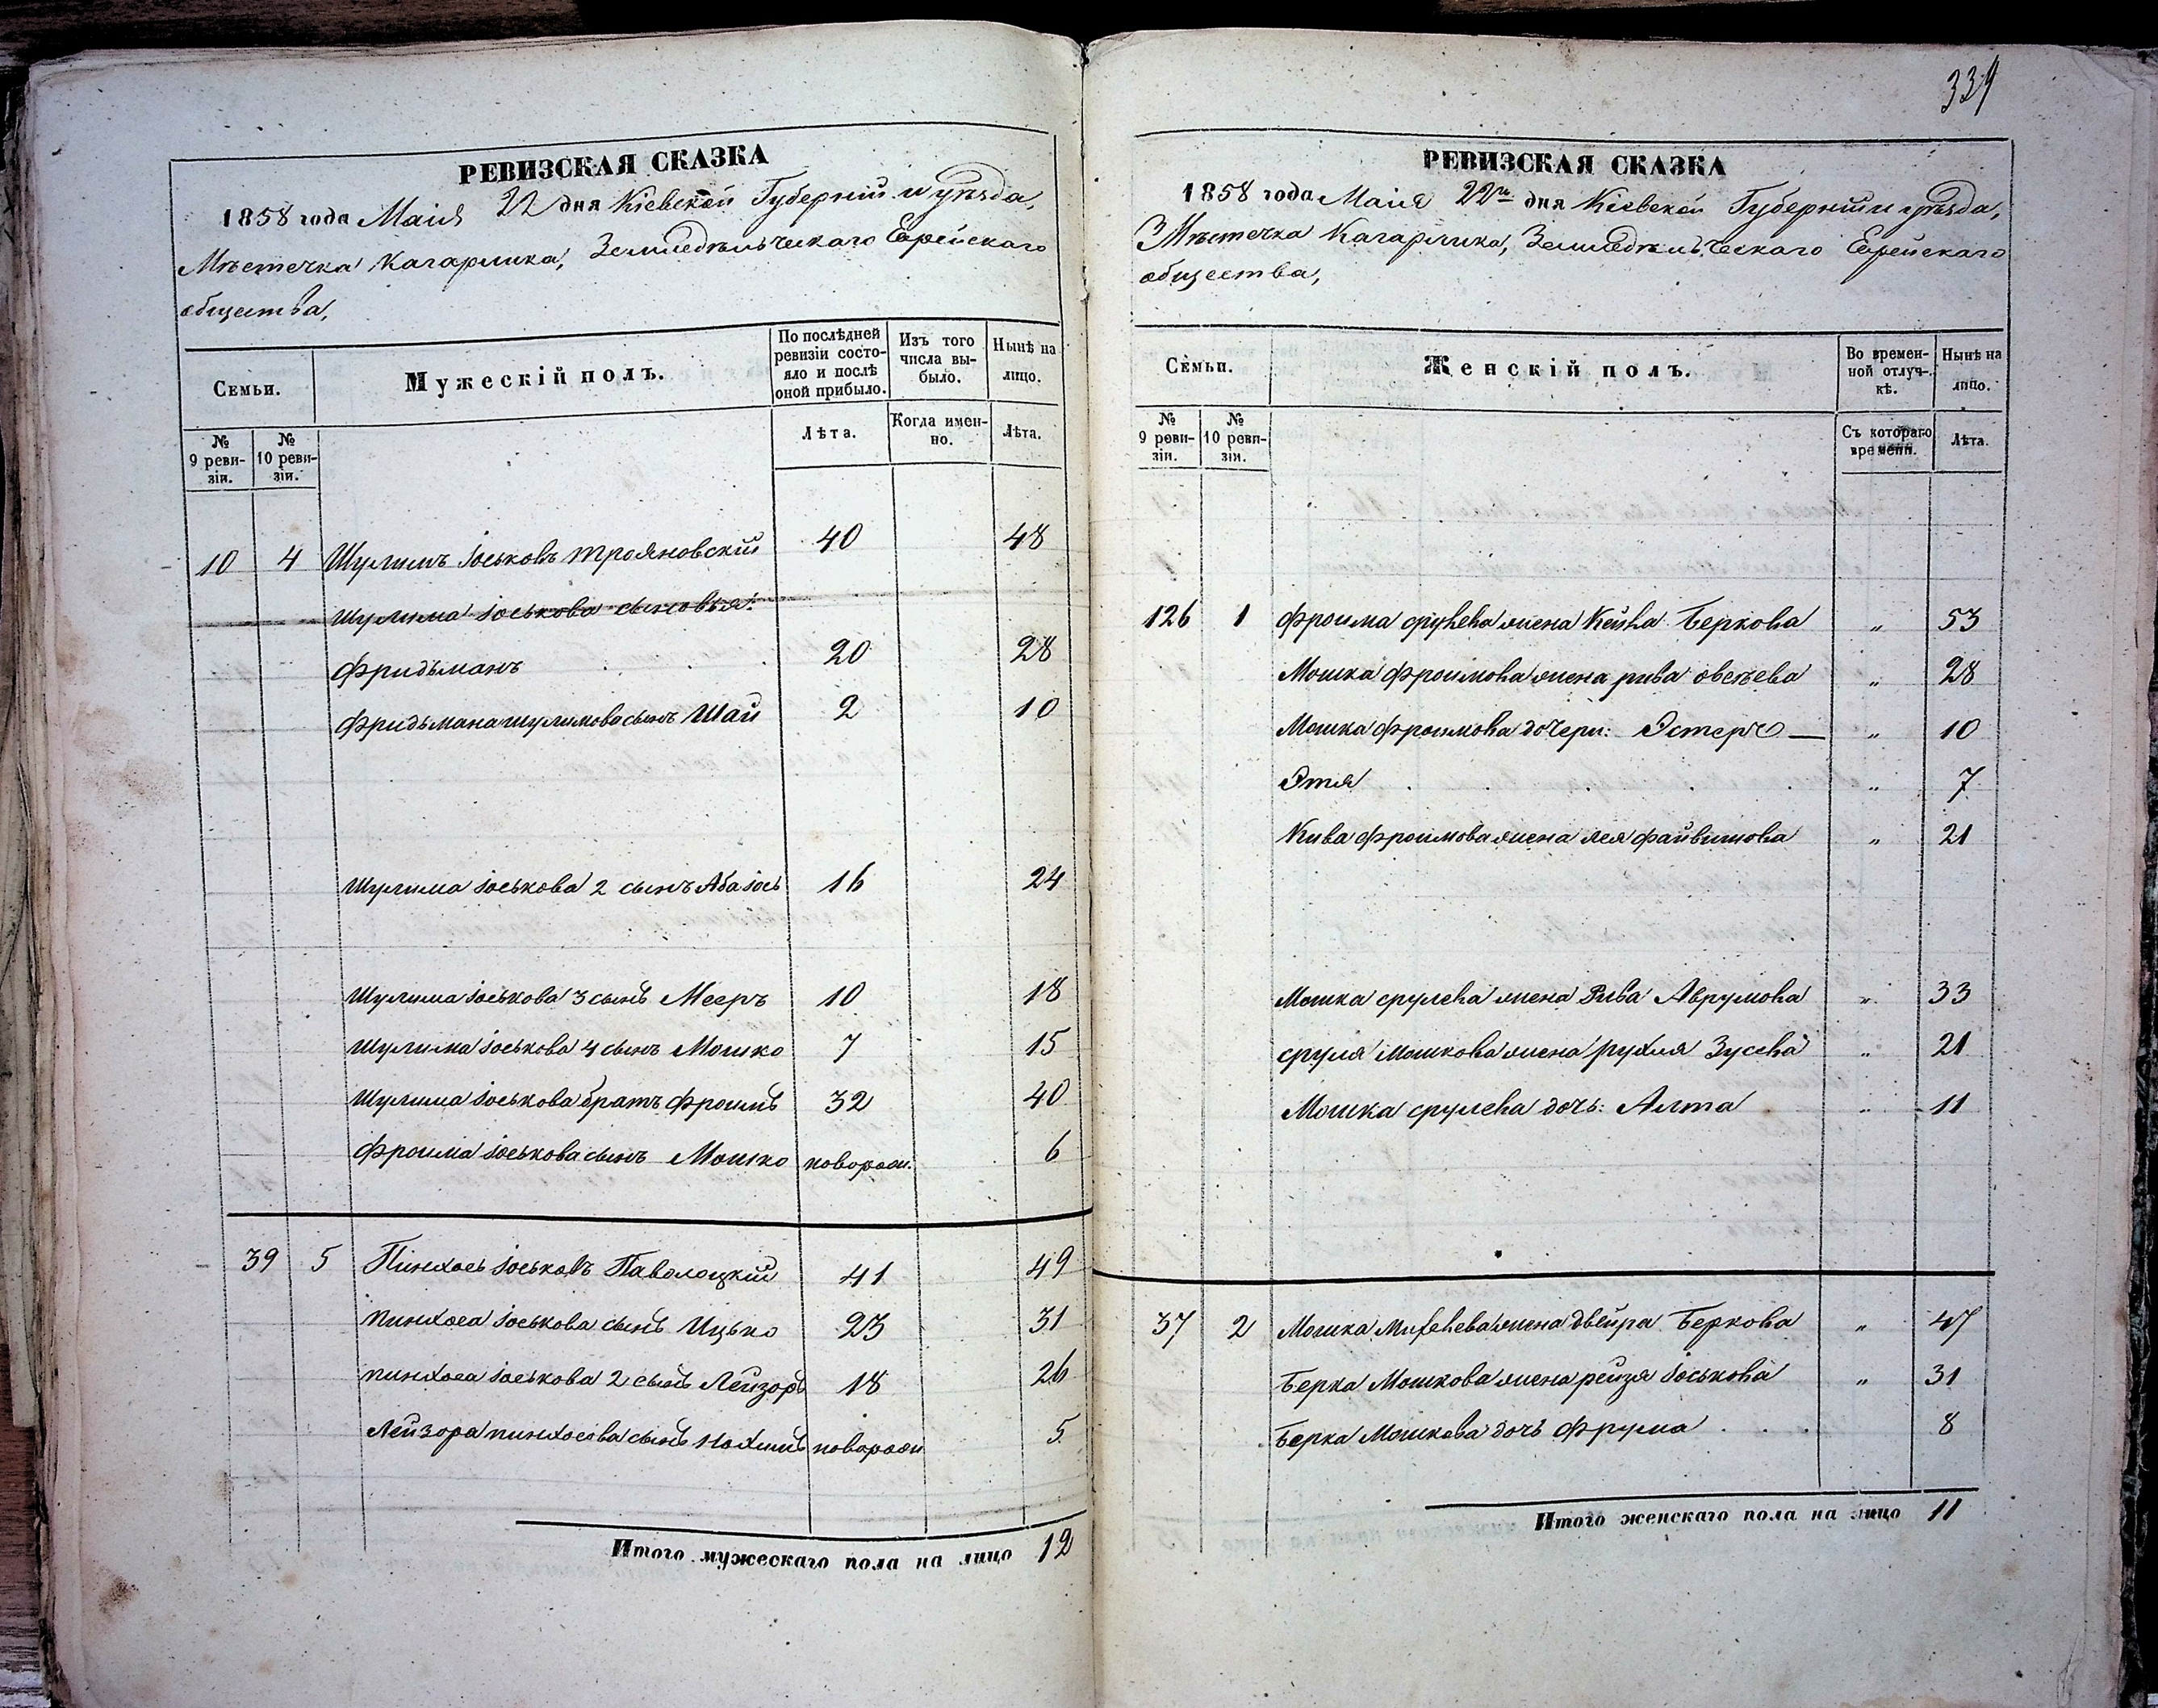 339
РЕВИЗСКАЯ СКАЗКА
1858 года Маія 22 дня Кіевской Губерніи и уѣзда,
Мѣстечка Кагарлика, Земледѣльческаго Еврейскаго
общества,
Семьи.
Мужескій полъ.
По послѣдней ревизіи состояло и послѣ оной прибыло.
Изъ того числа выбыло.
Нынѣ на лицо.
№ 9 ревизіи.
№ 10 ревизіи.
Лѣта.
Когда именно.
Лѣта.
10 4 Шулимъ Іоськовъ Трояновскій 40 48
Шулима Іоськова сыновья:
Фридьманъ 20 28
Фридьмана Шулимова сынъ Шай 2 10
Шулима Іоськова 2 сынъ Аба Іось 16 24
Шулима Іоськова 3 сынъ Мееръ 10 18
Шулима Іоськова 4 сынъ Мошко 7 15
Шулима Іоськова братъ Фроимъ 32 40
Фроима Іоськова сынъ Мошко новорож. 6
39 5 Пинхось Іоськовъ Паволоцкій 41 49
Пинхоса Іоськова сынъ Ицько 23 31
Пинхоса Іоськова 2 сынъ Лейзоръ 18 26
Лейзора Пинхосова сынъ Нахимъ новорож 5
Итого мужескаго пола на лицо 12
РЕВИЗСКАЯ СКАЗКА
1858 года Маія 22го дня Кіевской Губерніи и уѣзда,
Мѣстечка Кагарлика, Земледѣльческаго Еврейскаго
общества,
Семьи.
Женскій полъ.
Во временной отлучкѣ.
Нынѣ на лицо.
№ 9 ревизіи.
№ 10 ревизіи.
Съ котораго времени.
Лѣта.
126 1 Фроима Срулева жена Кейва Беркова " 53
Мошка Фроимова жена Рива " 28
Мошка Фроимова дочери: Эстеръ — " 10
Этя " 7
Кива Фроимова жена Лея Файвишова " 21
Мошка Срулева жена Рива Аврумова " 33
Сруля Мошкова жена Рухля Зусева " 21
Мошка Срулева дочь: Алта " 11
37 2 Мошка жена Двейра Беркова " 47
Берка Мошкова жена Рейзя Іоськова " 31
Берка Мошкова дочь Фрума 8
Итого женскаго пола на лицо 11